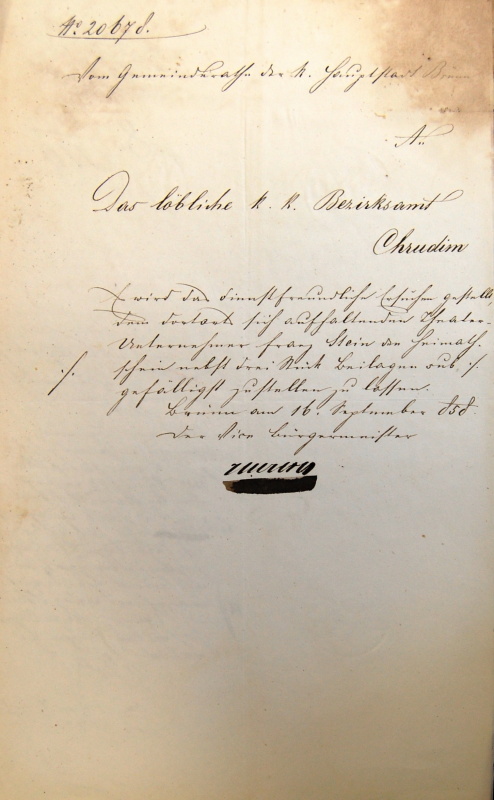 No 20678.
Vom Gemeinderathe der k. Hauptstadt Brünn
An
Das löbliche k. k. Bezirksamt
Chrudim
Es wird das dienstfreundliche Ersuchen gestellt,
dem dortorts sich aufhaltenden Theater-
Unternehmer Franz Stein den Heimath-
schein nebst drei Stück Beilagen sub ./.
./. gefälligst zustellen zu lassen.
Brünn am 16. September 858.
Der Vice Bürgermeister